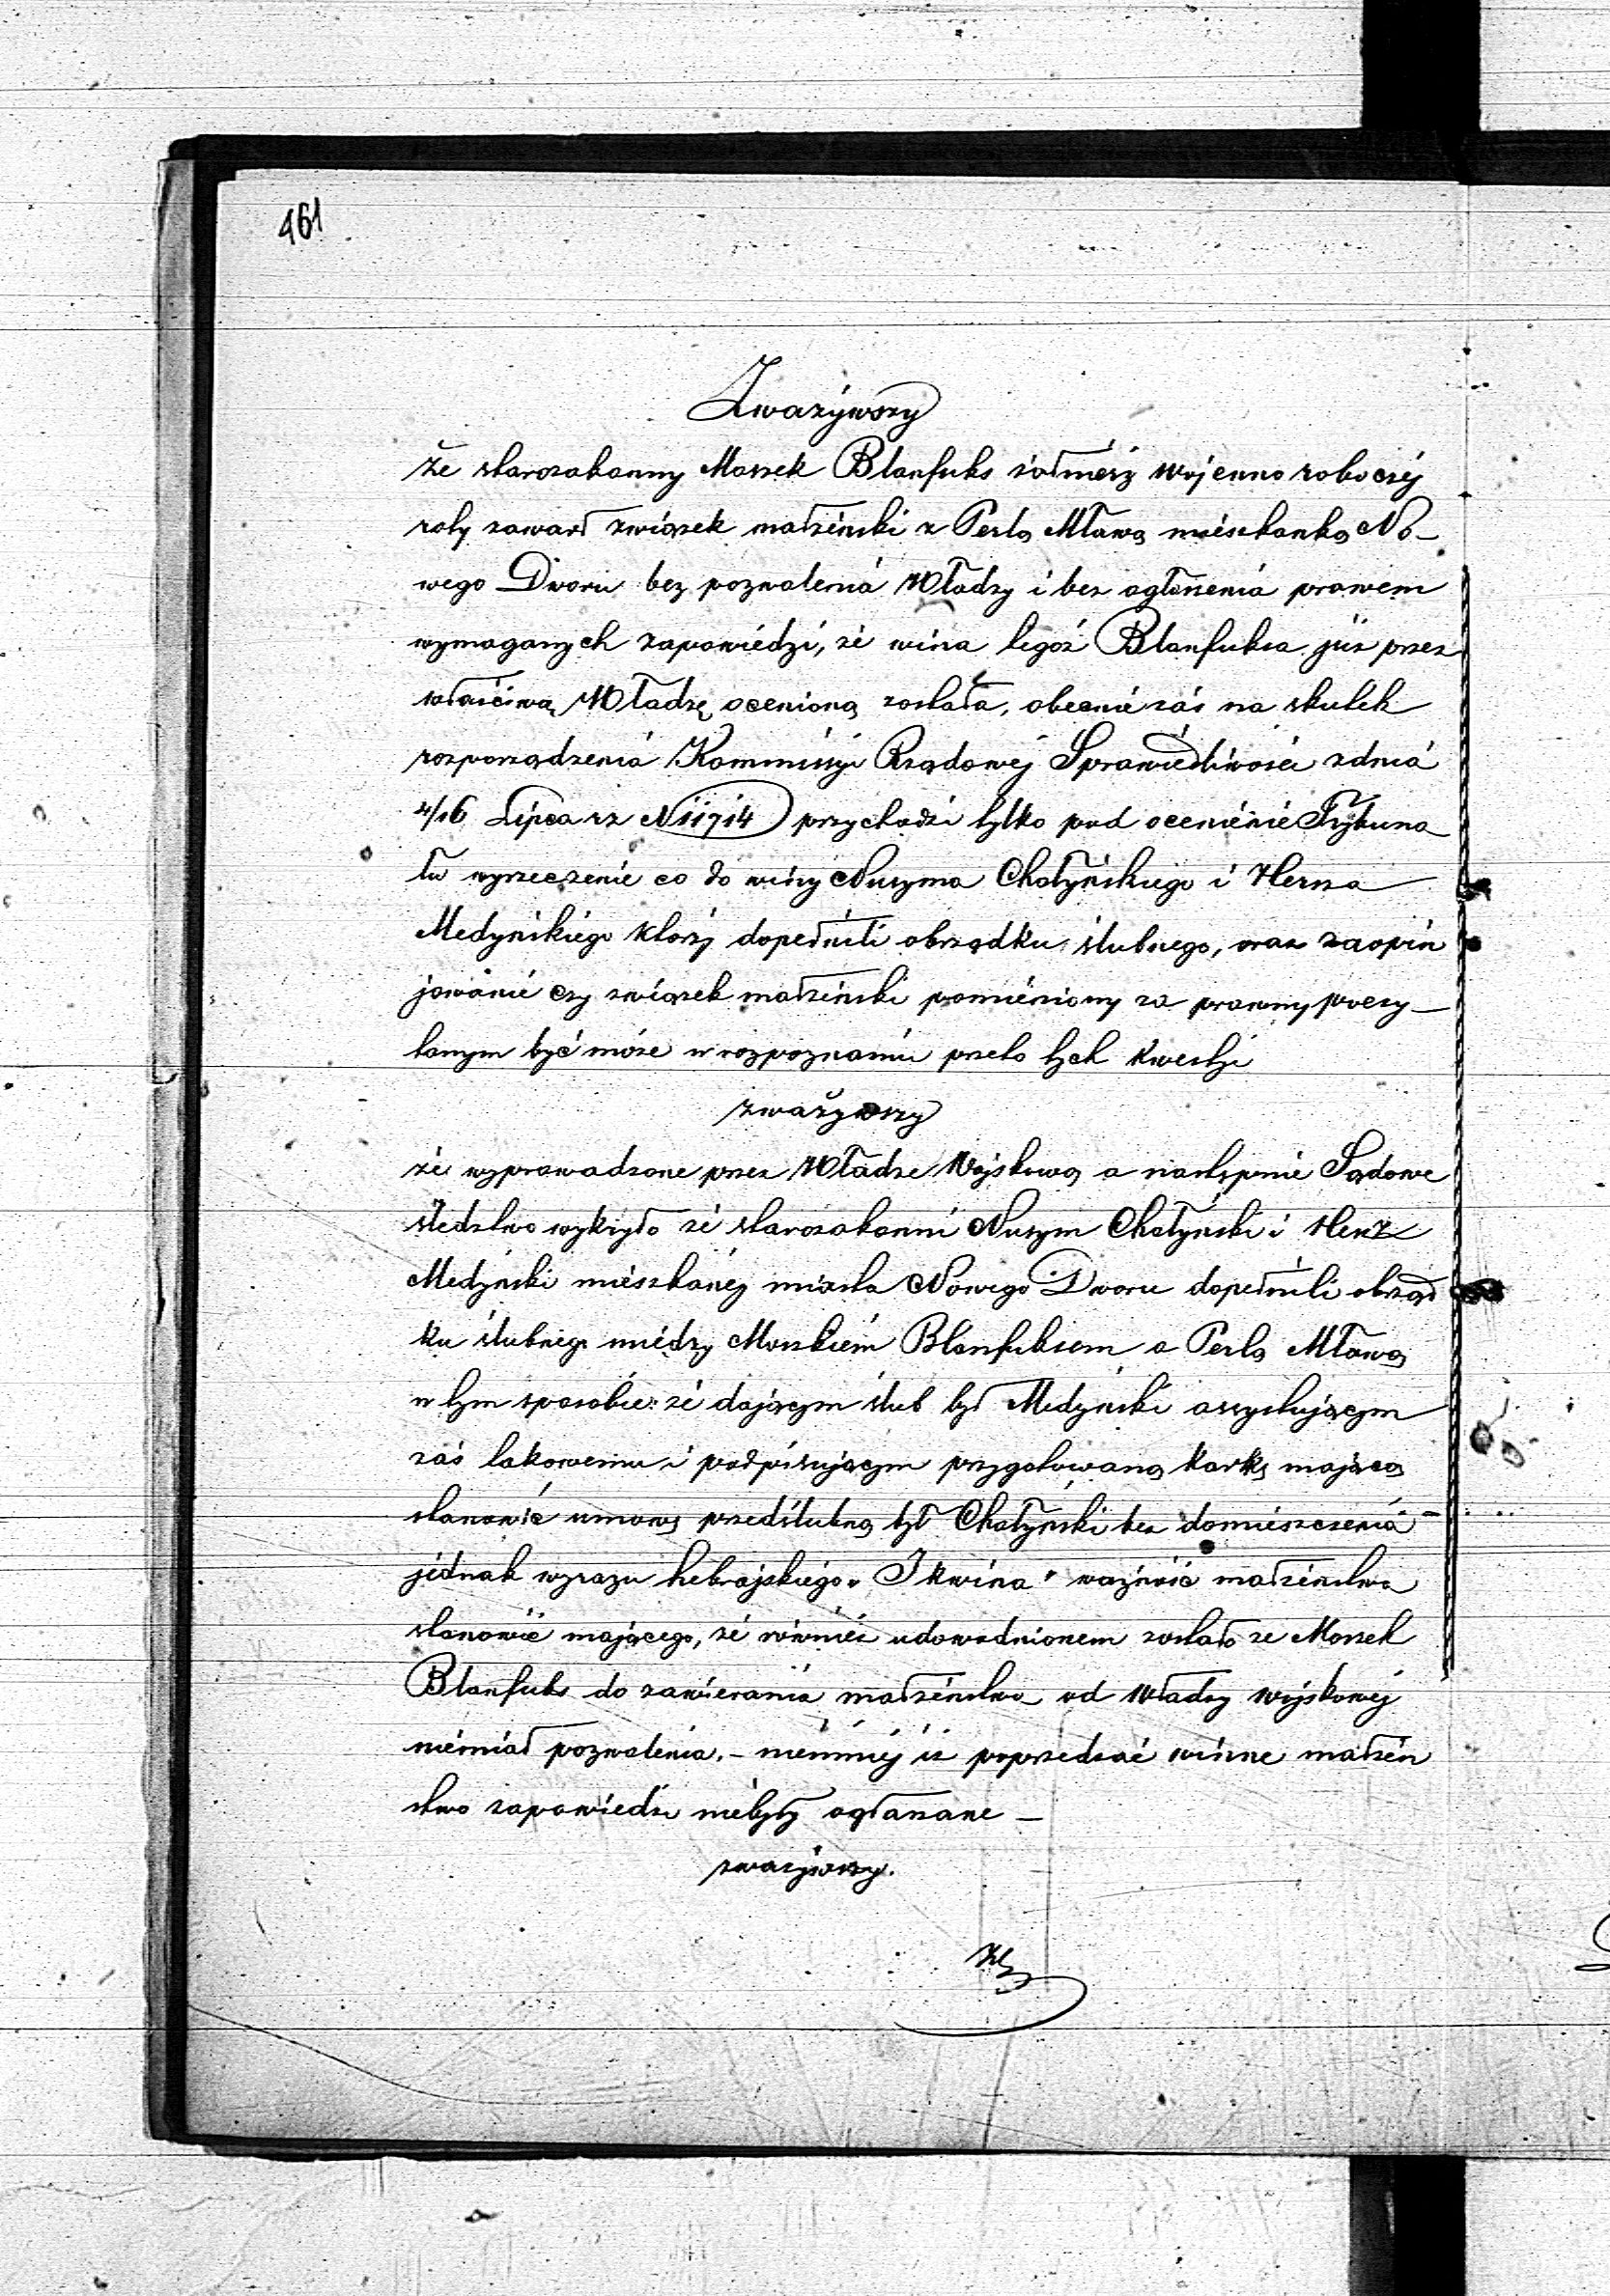 461
Zważywszy
że starozakonny Moszek Blanfuks żołnierz wojenno roboczéj
roty zawarł związek małżeński z Perlą Mławą mieszkanką No-
wego Dworu bez pozwolenia Władzy i bez ogłoszenia prawem
wymaganych zapowiedzi, że wina tegoż Blanfuksa już przez
właściwą Władzę ocenioną została, obecnie zaś na skutek
rozporządzenia Kommissyi Rządowéj Sprawiedliwości z dnia
4/16 Lipca rz N 11714 przychodzi tylko pod ocenienie Trybuna
łu wyrzeczenie co do winy Nuzyma Chotyńskiego i Hersza
Medyńskiego którzy dopełnili obrządku ślubnego, oraz zaopin
jowanie czy związek małżeński pomieniony za prawny poczy-
tanym być może w rozpoznaniu przeto tych kwestji
zważywszy
że wyprowadzone przez Władze Wojskową a następnie Sądowe
śledztwo wykryło że starozakonni Nuzym Chotyński i Hersz
Medyński mieszkańcy miasta Nowego Dworu dopełnili obrząd
ku ślubnego między Moszkiem Blanfuksem a Perlą Mławą
w tym sposobie: że dającym ślub był Medyński assystującym
zaś takowemu i podpisującym przygotowaną kartkę mającą
stanowić umowę przedślubną był Chotyński bez domieszczenia -
jednak wyrazu hebrajskiego „Ikwina" ważność małżeństwa
stanowić mającego, że również udowodnionem zostało że Moszek
Blanfuks do zawierania małżeństwa od władzy wojskowéj
niemiał pozwolenia. - niemniéj iż poprzedzać winne małżeń
stwo zapowiedzi niebyły ogłaszane -
zważywszy.